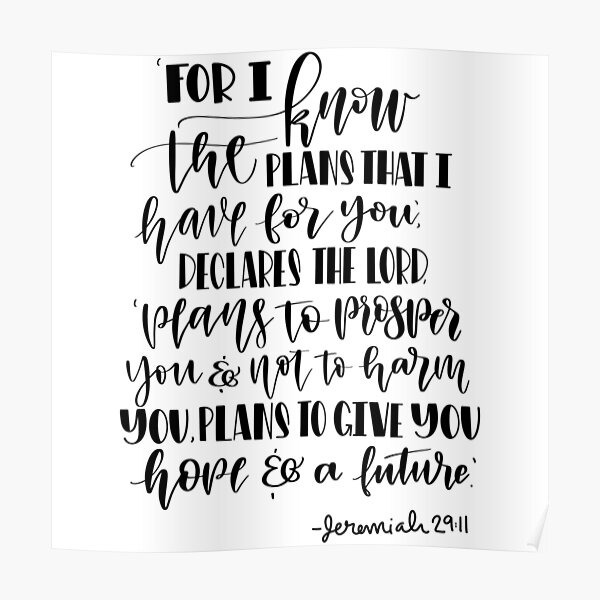 'FOR I know
the PLANS THAT I
have for you',
DECLARES THE LORD,
'plans to prosper
you & not to harm
YOU, PLANS TO GIVE YOU
hope & a future.'
-Jeremiah 29:11